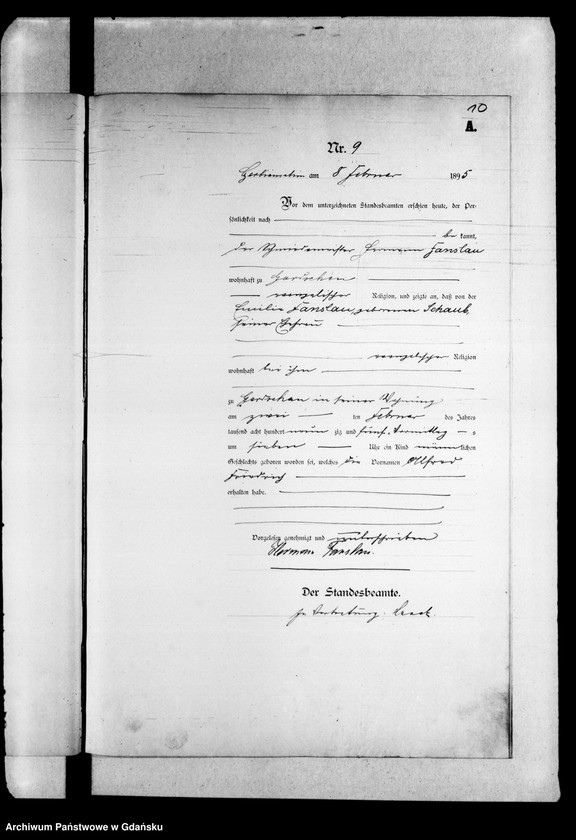 10
A.
Nr. 9
am 8 Februar 1895
Vor dem unterzeichneten Standesbeamten erschien heute, der Per-
sönlichkeit nach
be kannt,
der Schmiedemeister Hermann Fanslau
wohnhaft zu Gardschau
evangelischer Religion, und zeigte an, daß von der
Emilie Fanslau, geborenen Schaub,
seiner Ehefrau
evangelischer Religion
wohnhaft bei ihm
zu Gardschau in seiner Wohnung
am zwei ten Februar des Jahres
tausend acht hundert neun zig und fünf Vormittag s
um sieben Uhr ein Kind männlichen
Geschlechts geboren worden sei, welches die Vornamen Alfred
Friedrich
erhalten habe.
Vorgelesen, genehmigt und unterschrieben
Hermann Fanslau.
Der Standesbeamte.
In Vertretung:
Archiwum Państwowe w Gdańsku